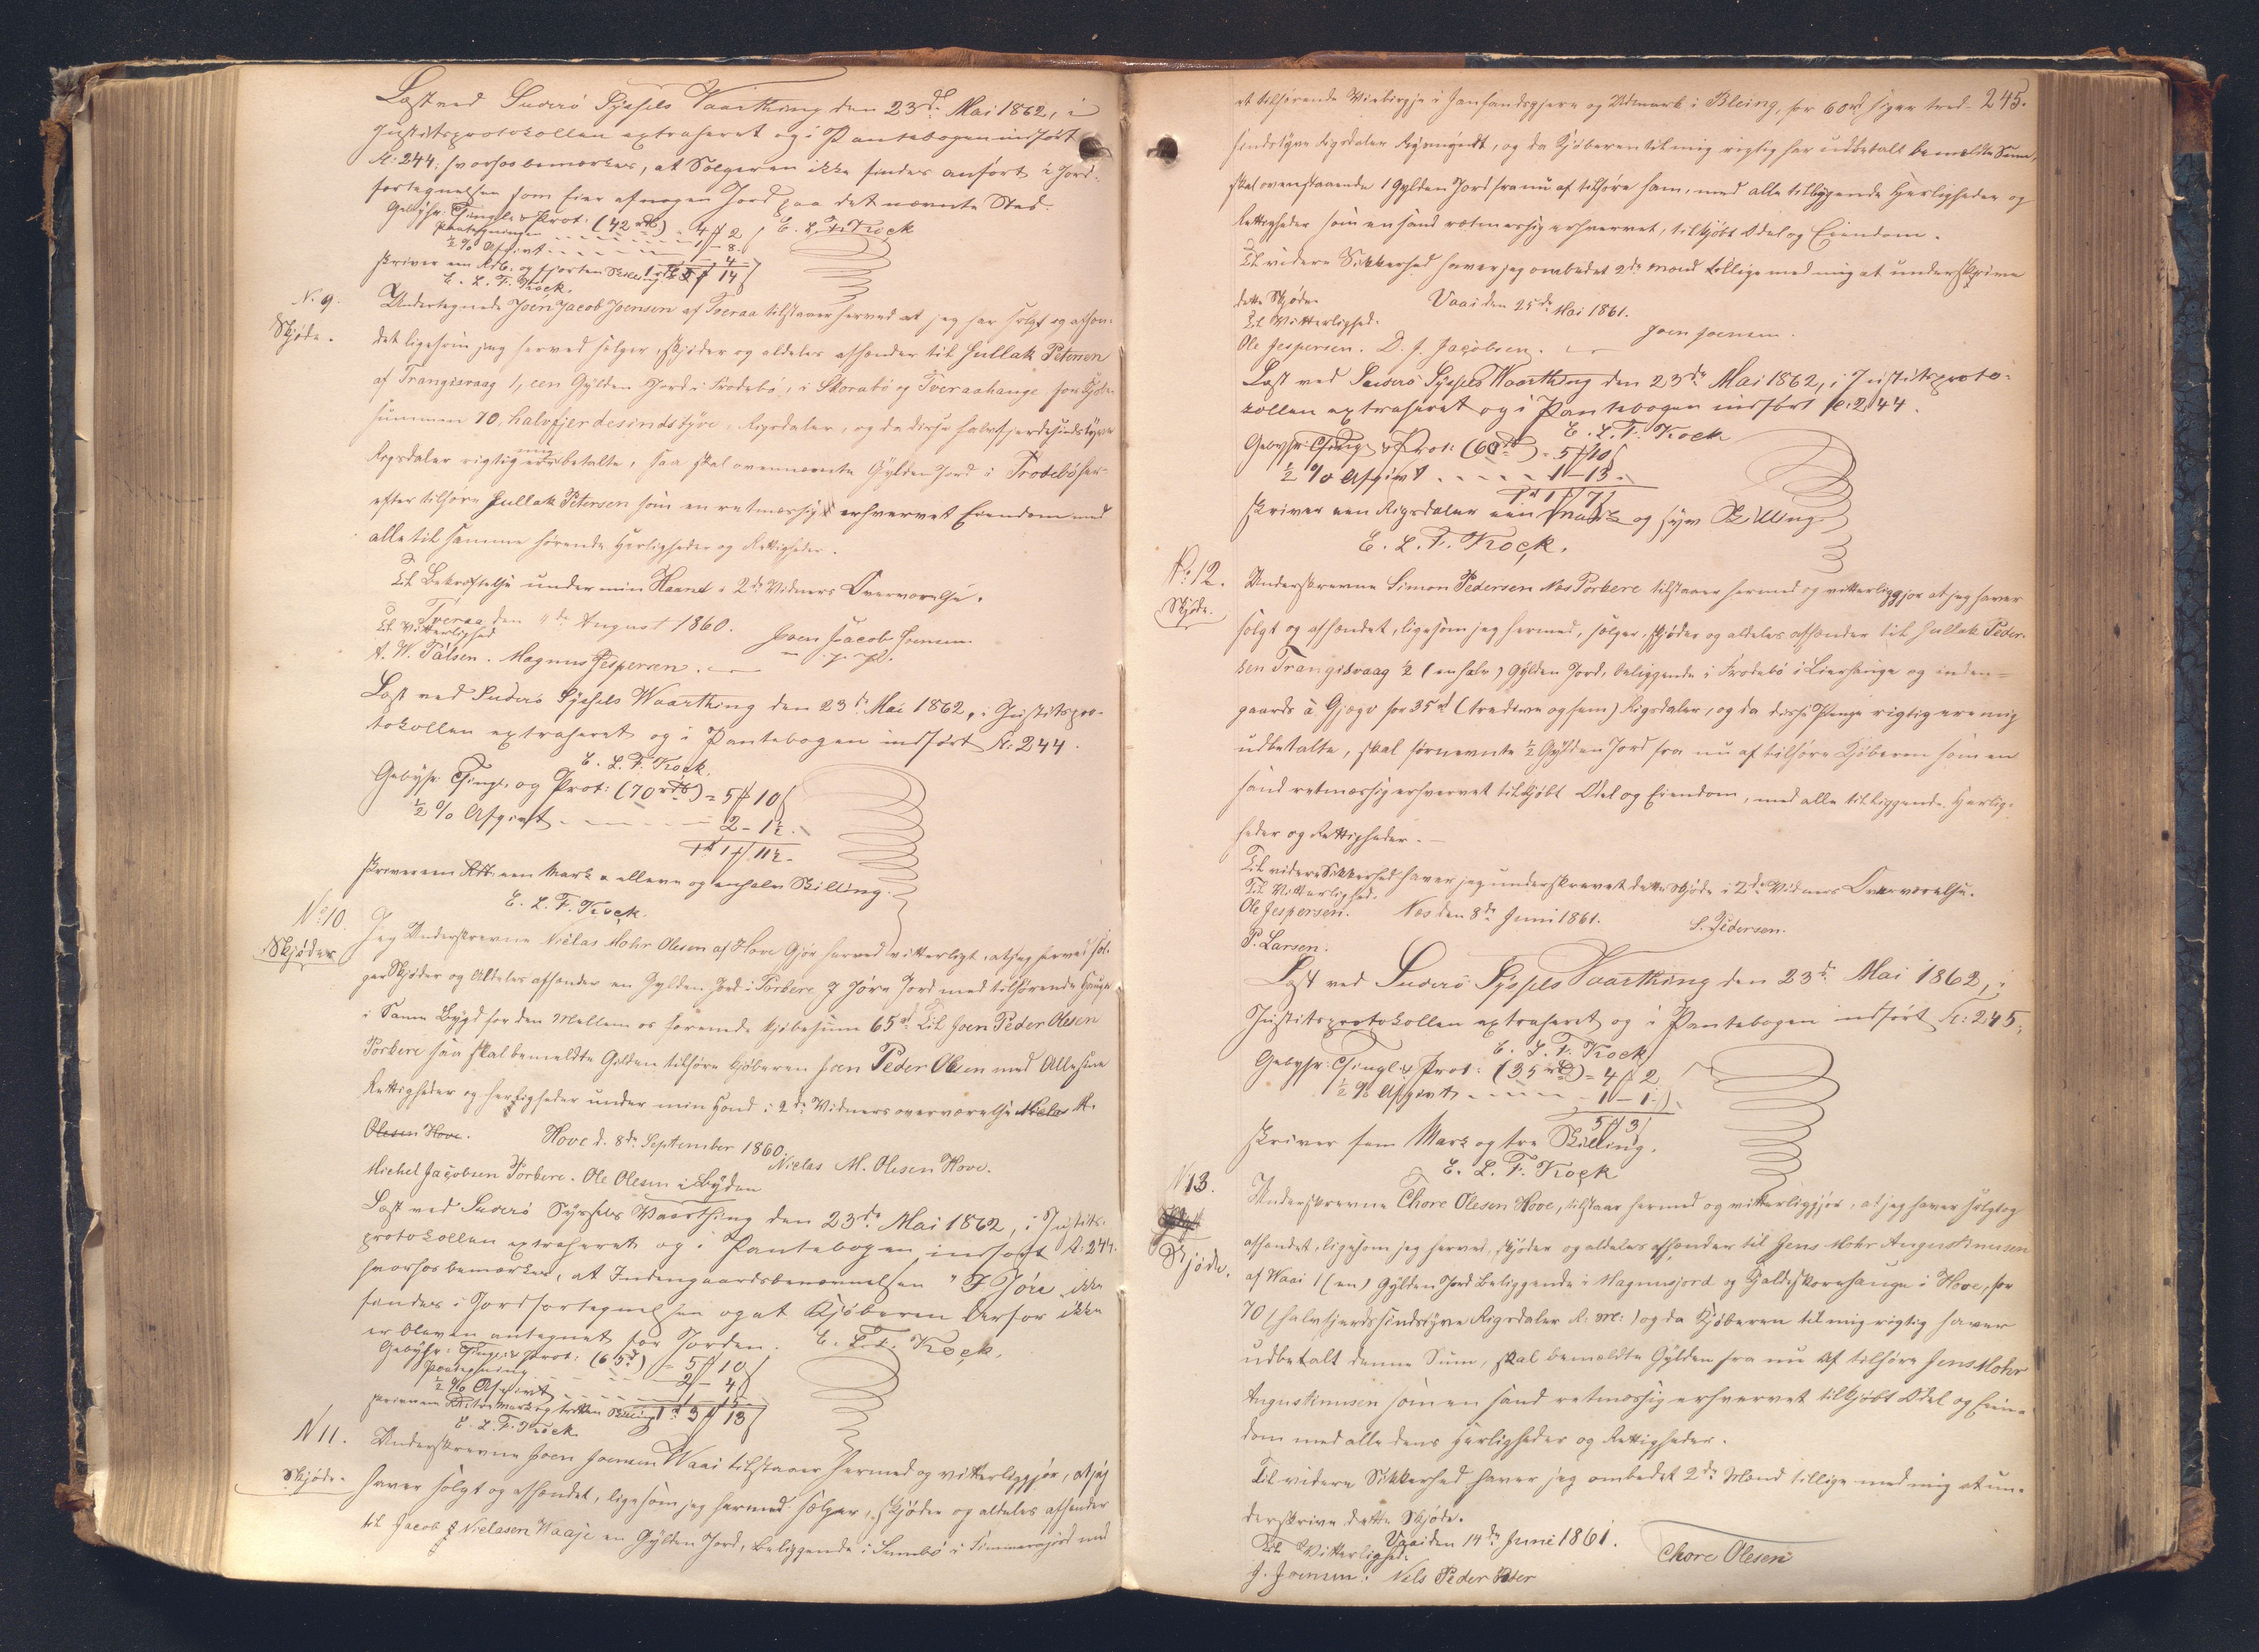 Læst ved Suderö Syssels Vaarthing den 23de Mai 1862, i
Justitsprotokollen extraheret og i Pantebogen indført
Fl: 244; hvorhos bemærkes, at Sælgeren ikke findes anført i Jord-
fortegnelsen som Eier af nogen Jord paa det nævnte Sted.
Gebyhr: Tingl. & Prot: (42 rd) = 4 # 2 ß E. L. F. Kock
Paategningen 1 - 8 -
½ % Afgivt - 4 -
skriver een Rd. og fjorten Skilling 1 rd # 14 ß
E. L. F. Kock.
N. 9.
Skjøde.
Undertegnede Joen Jacob Joensen af Tveraa tilstaaer herved at jeg har solgt og afhæn-
det ligesom jeg herved sælger, skjøder og aldeles afhænder til Hullak Petersen
af Trangisvaag 1, een Gylden Jord i Frodebö, i Skorabö og Tveraahauge for Kjöbe-
summen 70, halvfjerdesindstyve, Rigsdaler, og da disse halvfjerdesindstyve
Rigsdaler rigtig ere mig betalte, saa skal ovennævnte Gylden Jord i Frodebö her-
efter tilhøre Hullak Petersen som en retmæssig erhvervet Eiendom med
alle til samme hørende Herligheder og Rettigheder.
Til Bekræftelse under min Haand i 2de Vidners Overværelse.
Tveraa den 4de August 1860. Joen Jacob Joensen
Til Vitterlighed m. f. P.
A. W. Pálsen. Magnus Jespersen.
Læst ved Suderö Syssels Waarthing den 23de Mai 1862, i Justitspro-
tokollen extraheret og i Pantebogen indført Fl: 244.
E. L. F. Kock.
Gebyhr Tingl. og Prot: (70 rd) = 5 # 10 ß
½ % Afgivt 2 - 1½ -
1 rd 1 # 11½ -
skriver een Rd. een Mark & elleve og en halv Skilling.
E. L. F. Kock.
No 10.
Skjøder
Jeg Underskrevne Niclas Mohr Olesen af Hove Gjør herved vitterligt, at jeg herved sæl-
ger Skjøder og Aldeles afhænder en Gylden Jord i Porkere I Jøra Jord med tilhørende Hauge
i Samme Bygd for den Mellem os forenede Kjøbesum 65 rd. til Joen Peder Olesen
Porkere saa skal bemeldte Gylden tilhøre Kjøberen Joen Peder Olesen med Alle sine
Rettigheder og herligheder under min Haand i 2de Vidners overværelse Niclas M.
Olesen Hove. Hove d. 8de September 1860.
Niclas M. Olesen Hove.
Michel Jacobsen Porkere. Ole Olesen i Bÿden
Læst ved Suderö Syssels Vaarthing den 23de Mai 1862, i Justits-
protokollen extraheret og i Pantebogen indført Fl: 244.
hvorhos bemærkes, at Indengaardsbenævnelsen "I Jöre" ikke
findes i Jordfortegnelsen og at Kjöberen derfor ikke
er bleven antegnet for Jorden. E. L. F. Kock.
Gebyhr: Tingl. & Prot: (65 d) = 5 # 10 ß
Paategning 2 - 4 ß
½ % Afgivt 1 - 15 -
skriver een Rd. tre Mark og tretten Skilling 1 rd 3 # 13 ß
E. L. F. Kock
N 11.
Skjöde.
Underskrevne Joen Joensen Waai tilstaaer hermed og vitterliggjør, at jeg
haver solgt og afhændet, ligesom jeg hermed sælger, skjøder og aldeles afhænder
til Jacob Niclasen Waaje en Gylden Jord, beliggende i Sumbö i Simmerajord med
245.
et tilhørende Miebirgje i Janhandsgjere og Udmark i Bleing, for 60 rd siger tred-
sindstyve Rigsdaler Rigsmyndt, og da Kjøberen til mig rigtig har udbetalt bemeldte Sum,
skal ovenstaaende 1 Gylden Jord fra nu af tilhøre ham, med alle tilliggende Herligheder og
Rettigheder som en sand retmæssig erhvervet, tilkjøbt Odel og Eiendom.
Til videre Sikkerhed haver jeg ombedet 2de Mænd tillige med mig at underskrive
dette Skjøde. Vaai den 25de Mai 1861.
Til Vitterlighed. Joen Joensen.
Ole Jespersen. D. J. Jacobsen.
Læst ved Suderö Syssels Waarthing den 23de Mai 1862, i Justitsproto-
kollen extraheret og i Pantebogen indført Fl: 244.
E. L. F. Kock
Gebyhr: Tingl. & Prot: (60 rd) = 5 # 10 ß
½ % Afgivt 1 - 13 -
1 rd 1 # 7 ß
skriver een Rigsdaler een Mark og syv Skilling.
E. L. F. Kock.
No 12.
Skjöde.
Underskrevne Simon Pedersen Næs Porkere tilstaaer hermed og vitterliggjør at jeg haver
solgt og afhændet, ligesom jeg hermed, sælger, skjøder og aldeles afhænder til Hullak Peder-
sen Trangisvaag ½ (en halv) Gylden Jord, beliggende i Frodebö i Lierhauge og inden-
gaards á Gjægv for 35 rd (tredive og fem) Rigsdaler, og da disse Penge rigtig ere mig
udbetalte, skal førnævnte ½ Gylden Jord fra nu af tilhøre Kjøberen som en
sand retmæssig erhvervet tilkjøbt Odel og Eiendom, med alle tilliggende Herlig-
heder og Rettigheder.
Til videre Sikkerhed haver jeg underskrevet dette Skjøde i 2de Vidners Overværelse.
Til Vitterlighed.
Ole Jespersen. Næs den 8de Juni 1861. S. Pedersen.
P. Larsen.
Læst ved Suderö Syssels Vaarthing den 23de Mai 1862, i
Justitsprotokollen extraheret og i Pantebogen indført Fl: 245.
E. L. F. Kock
Gebyhr: Tingl. & Prot: (35 rd) = 4 # 2
½ % Afgivt 1 - 1 -
5 # 3 ß
skriver fem Mark og tre Skilling.
E. L. F. Kock
N 13.
Skjöde.
Underskrevne Thore Olesen Hove, tilstaar hermed og vitterliggjør, at jeg haver solgt og
afhændet, ligesom jeg herved, skjøder og aldeles afhænder til Jens Mohr Angustinusen
af Waai 1 (en) Gylden Jord beliggende i Magnusjord og Galdskorahauge i Hove, for
70 (halvfjerdssindstyve Rigsdaler R: M:) og da Kjøberen til mig rigtig haver
udbetalt denne Sum, skal bemældte Gylden fra nu af tilhøre Jens Mohr
Angustinusen som en sand retmæssig erhvervet tilkjøbt Odel og Eien-
dom med alle dens Herligheder og Rettigheder.
Til videre Sikkerhed haver jeg ombedet 2de Mænd tillige med mig at un-
derskrive dette Skjøde.
Vaai den 14de Juni 1861.
Til Vitterlighed: Thore Olesen
J. Joensen. Nels Peder